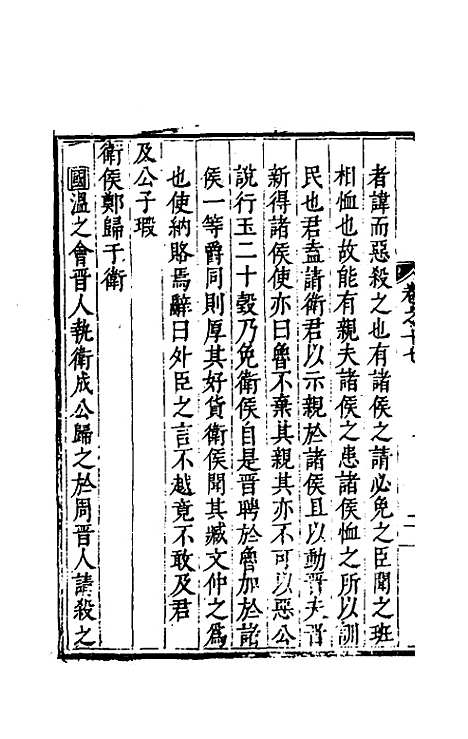 者諱而惡殺之也有諸侯之請必免之臣聞之班
相恤也故能有親夫諸侯之患諸侯恤之所以訓
民也君盍請衛君以示親於諸侯且以動晋夫晋
新得諸侯使亦曰魯不棄其親其亦不可以惡公
說行玉二十瑴乃免衛侯自是晋聘於魯加於諸
侯一等爵同則厚其好貨衛侯聞其臧文仲之爲
也使納賂焉辭曰外臣之言不越竟不敢及君
及公子瑕
衛侯鄭歸于衛
國溫之會晋人執衛成公歸之於周晋人請殺之